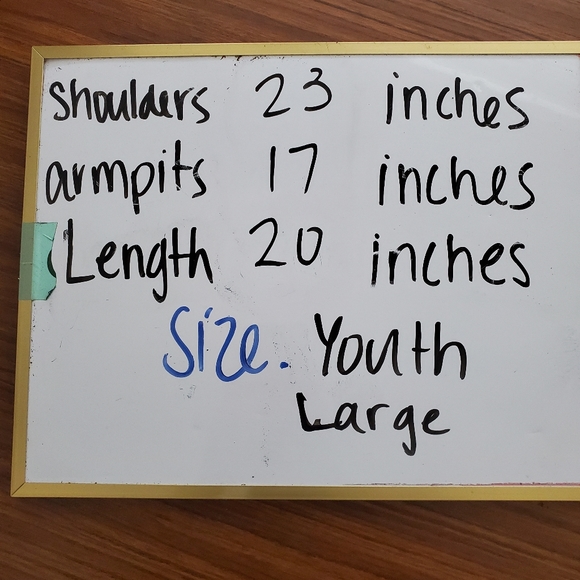 Shoulders 23 inches
armpits 17 inches
Length 20 inches
Size. Youth
Large